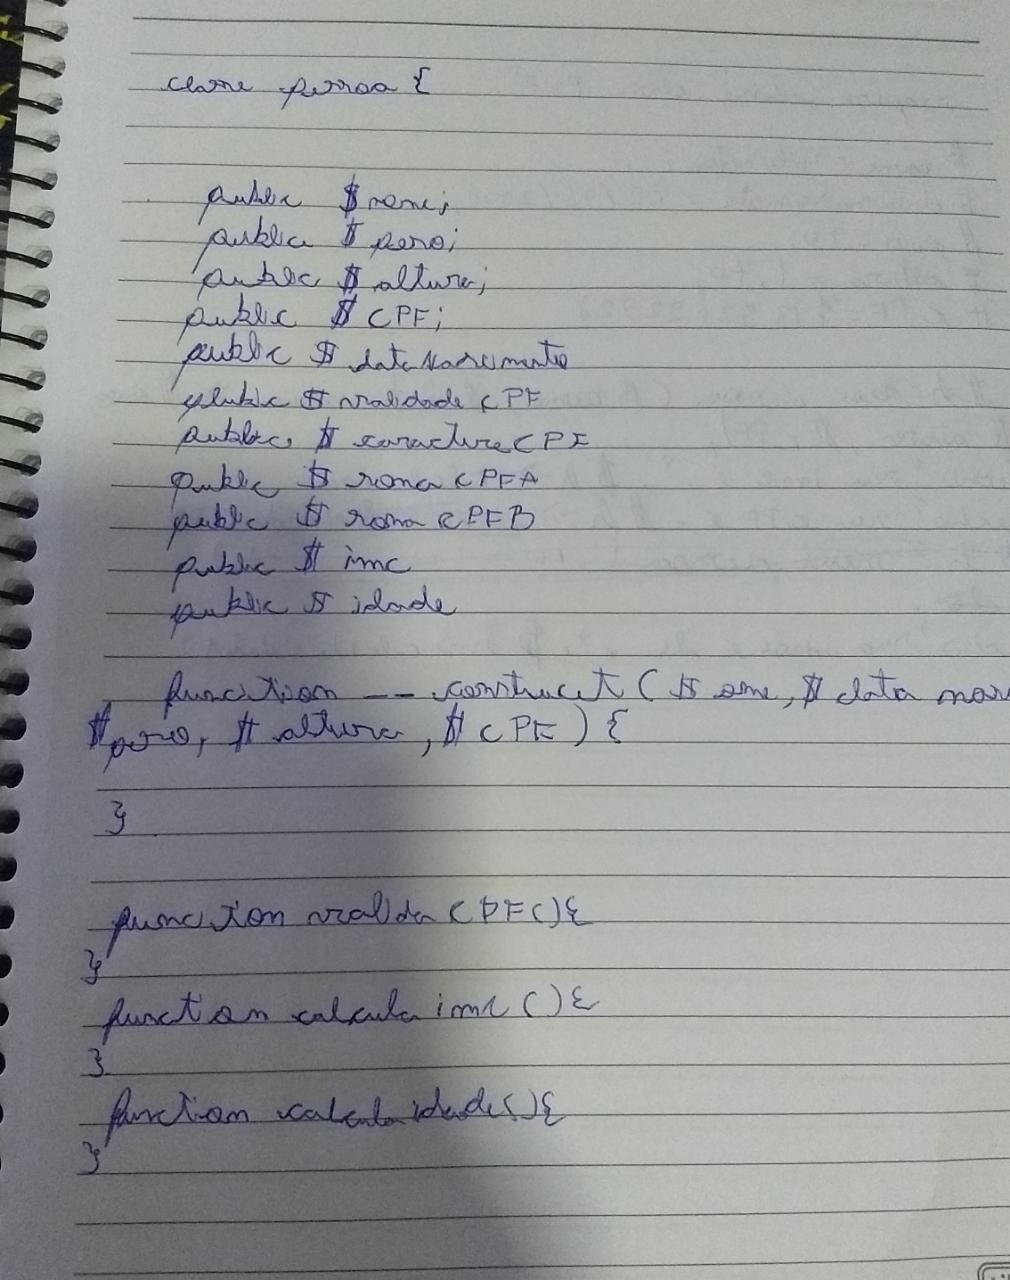 classe pessoa {
public $ nome;
public $ peso;
public $ altura;
public $ CPF;
public $ dataNascimento
public $ validade CPF
public $ caractere CPF
public $ soma CPFA
public $ soma CPFB
public $ imc
public $ idade
function -- construct ( $ ome, $ data nas
$ peso, $ altura, $ CPF ) {
}
function valida CPF(){
}
function calcula imc (){
}
function calcula idade(){
}